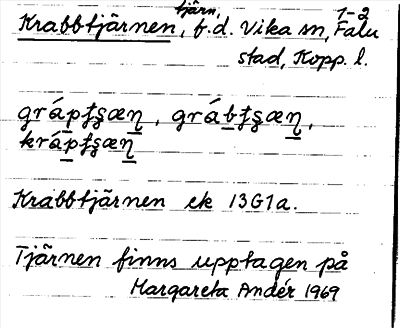 tjärn, 1-2
Krabbtjärnen, f.d. Vika sn, Falu
stad, Kopp. l.
grápʈʂæɳ, grábʈʂæɳ,
krápʈʂæɳ
Krabbtjärnen ek 13G1a.
Tjärnen finns upptagen på
Margareta Andér 1969